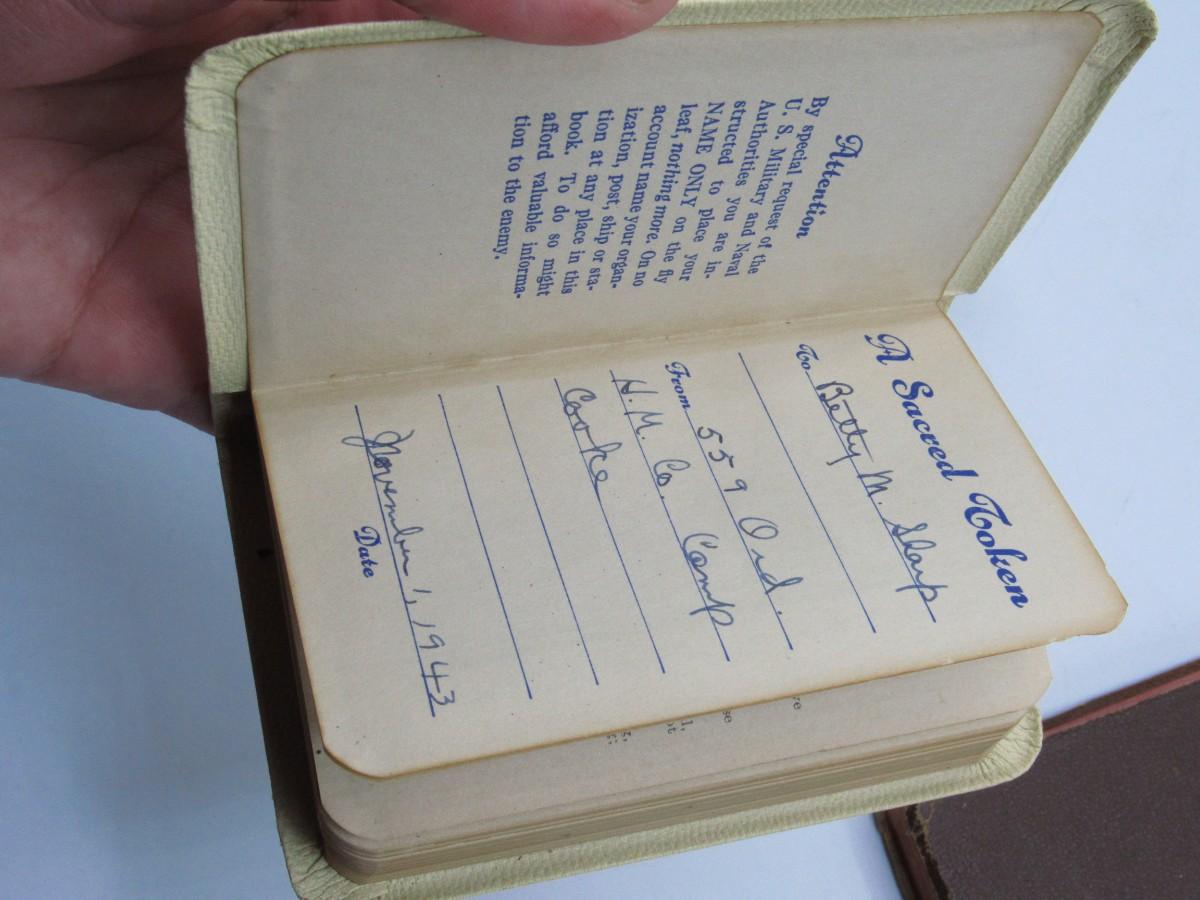 Attention
By special request of the
U. S. Military and Naval
Authorities you are in-
structed to place your
NAME ONLY on the fly
leaf, nothing more. On no
account name your organ-
ization, post, ship or sta-
tion at any place in this
book. To do so might
afford valuable informa-
tion to the enemy.
A Sacred Token
To Betty M. Slap
From 559 Ord.
H. M. Co. Camp
Cooke
November 1, 1943
Date